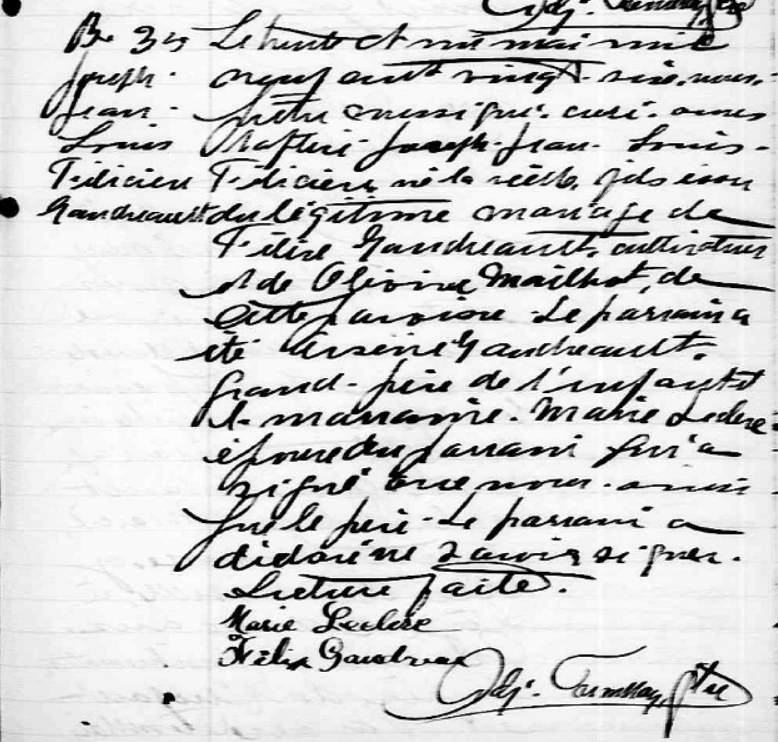 B. 35 Le trente et un mai mil
Joseph. neuf cent vingt-six, nous,
Jean. prêtre soussigné, curé avons
Louis Baptisé Joseph-Jean-Louis-
Félicien Félicien, né la veille, fils issu
Gaudreault du légitime mariage de
Félix Gaudreault, cultivateur
et de Olivine Mailhot, de
cette paroisse. Le parrain a
été Arsène Gaudreault,
grand-père de l'enfant et
la marraine. Marie Leclerc
épouse du parrain qui a
signé avec nous ainsi
que le père. Le parrain a
déclaré ne savoir signer.
Lecture faite.
Marie Leclerc
Félix Gaudreau
Adj. Ptre